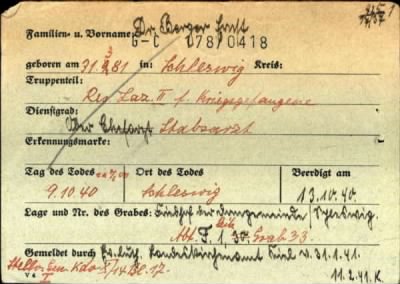 Familien- u. Vorname: Dr. Berger Ernst
G-C 078/0418
geboren am 31.3.81 in: Schleswig Kreis:
Truppenteil:
Res. Laz. II f. Kriegsgefangene
Dienstgrad:
Der Chefarzt Stabsarzt
Erkennungsmarke:
Tag des Todes Ort des Todes Beerdigt am
9.10.40 Schleswig 13.10.40.
Lage und Nr. des Grabes: Friedhof der Domgemeinde/Schleswig.
Abt. F. 1, 30. Grab 33.
Gemeldet durch Ev. Luth. Landeskirchenamt Kiel v. 31.1.41.
Stellv. Gen. Kdo X
11.2.41. K.